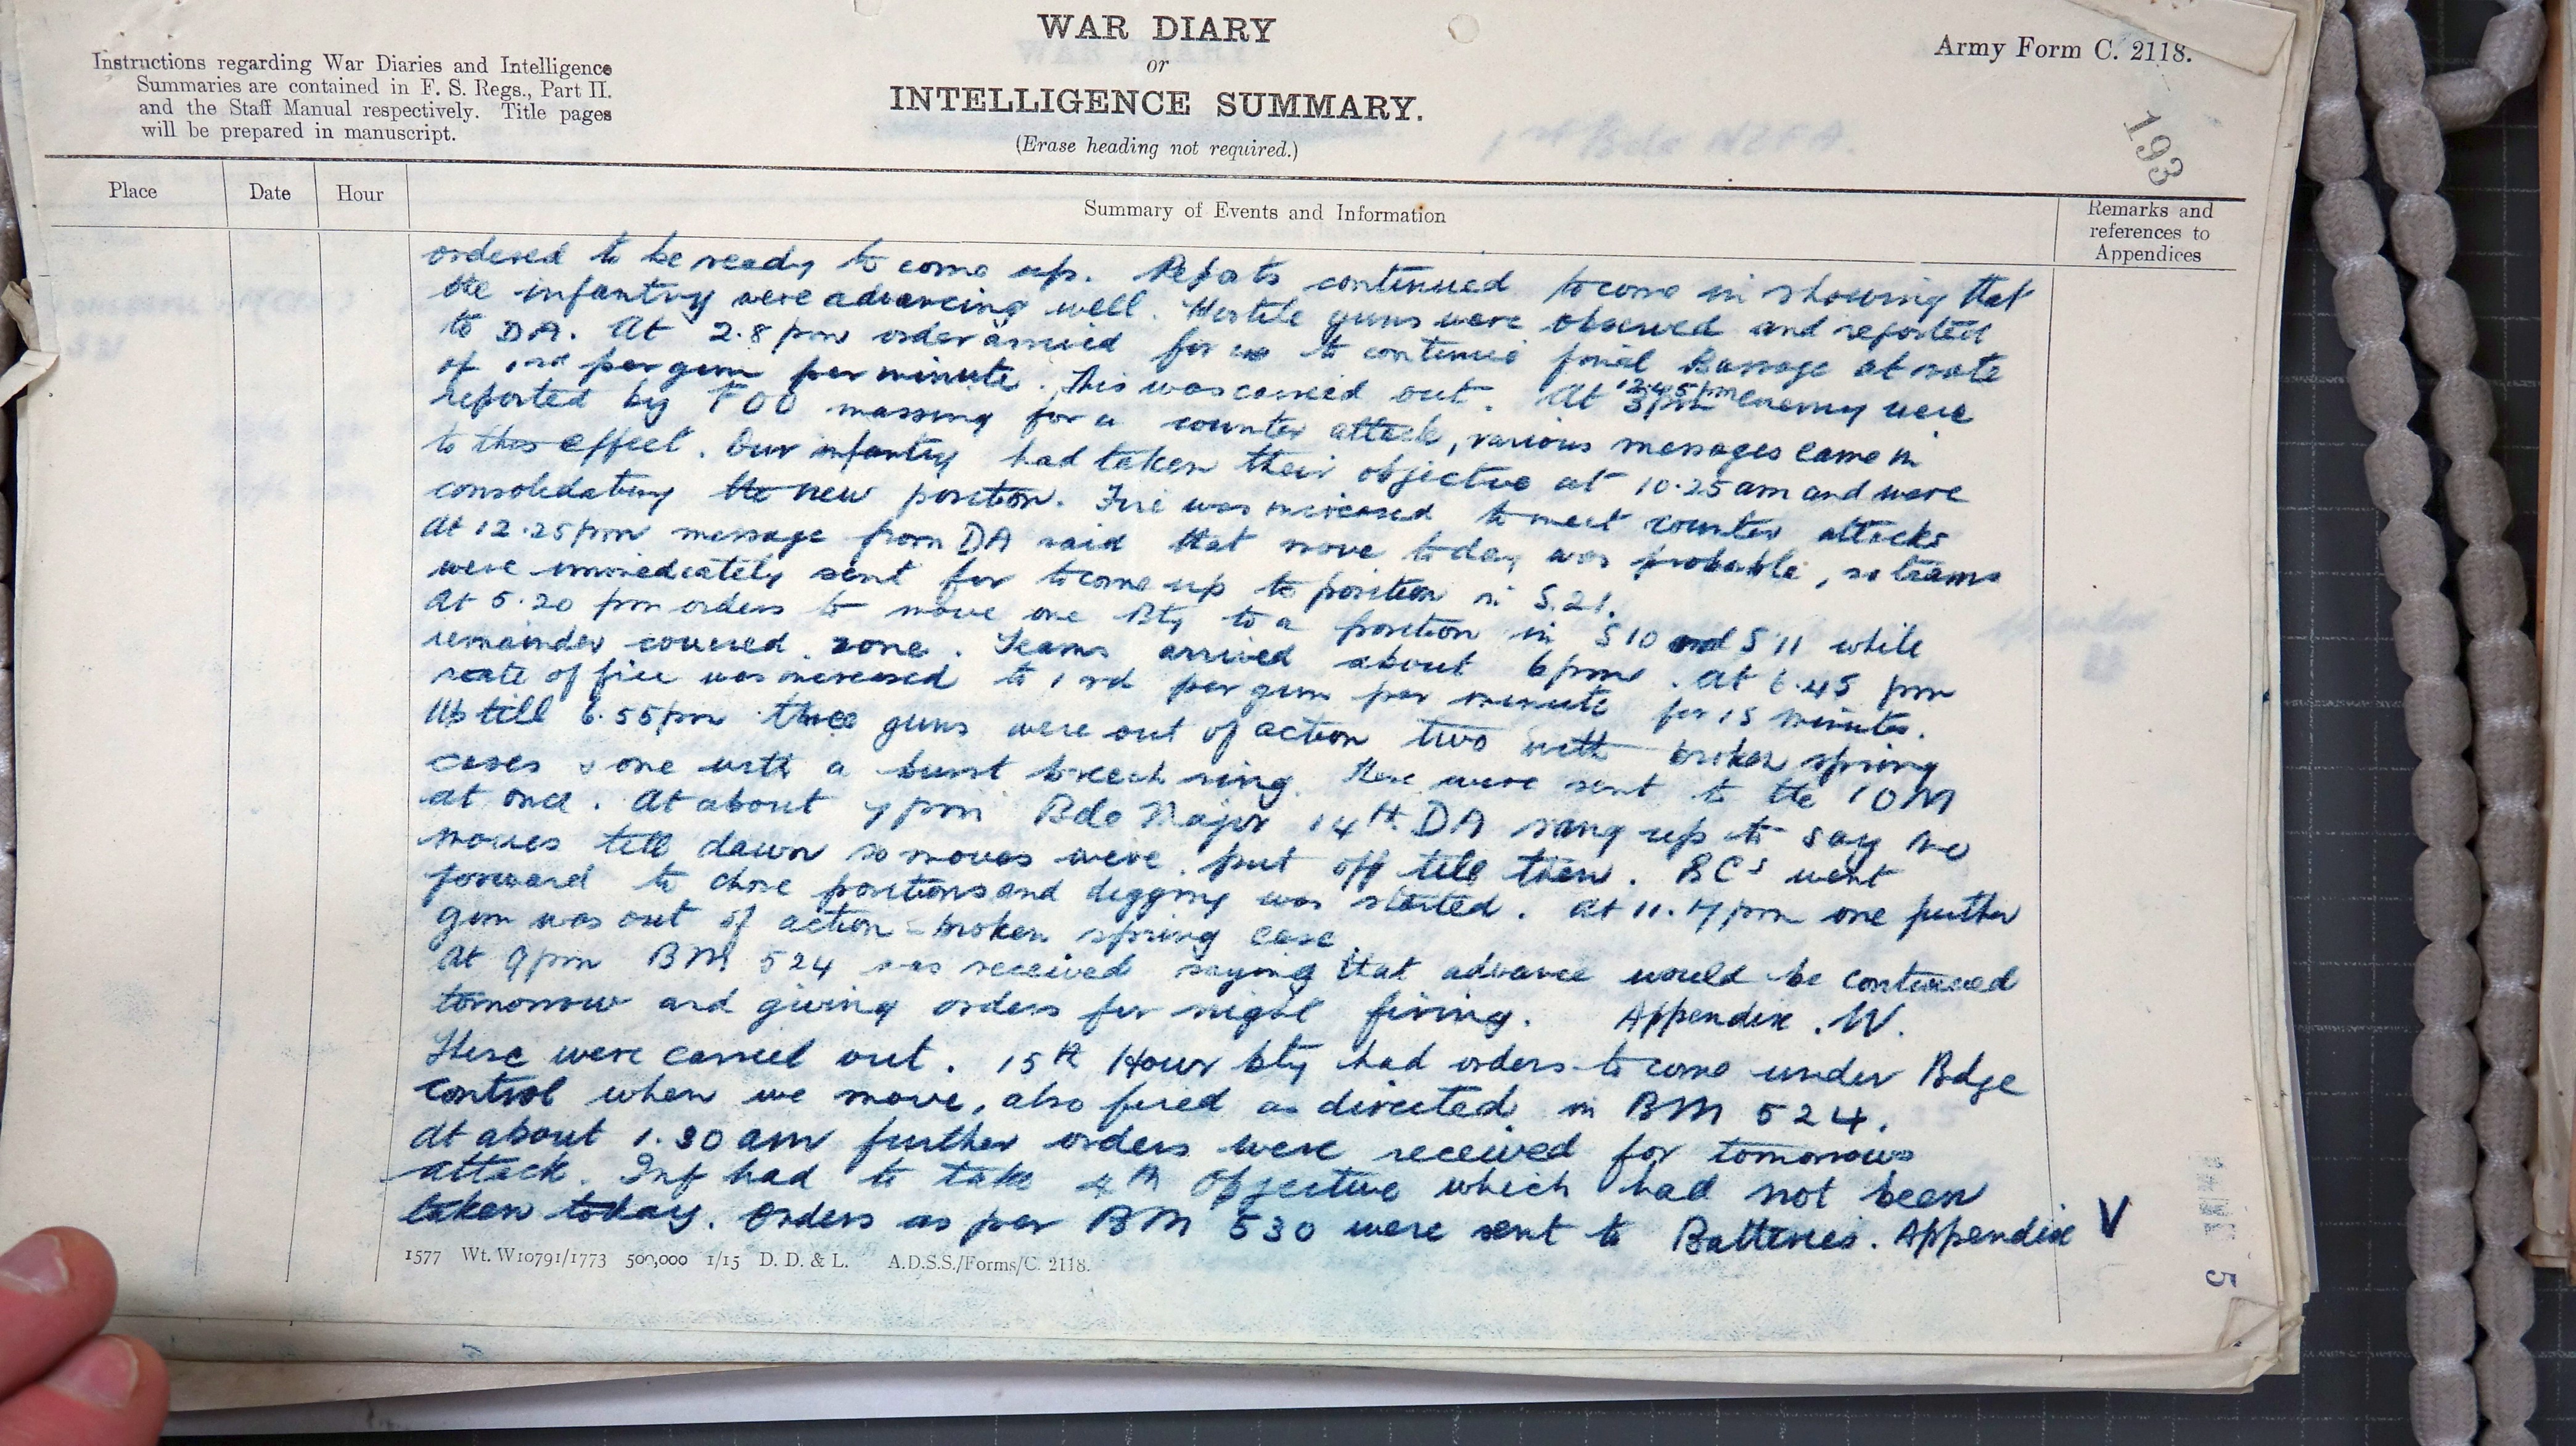 WAR DIARY
or
INTELLIGENCE SUMMARY.
(Erase heading not required.)
Army Form C. 2118.
Instructions regarding War Diaries and Intelligence
Summaries are contained in F. S. Regs., Part II.
and the Staff Manual respectively. Title pages
will be prepared in manuscript.
1st Bde NZFA.
193
Place
Date
Hour
Summary of Events and Information
Remarks and
references to
Appendices
ordered to be ready to come up. Reports continued to come in showing that
the infantry were advancing well. Hostile guns were observed and reported
to DA. At 2.8 pm order arrived for us to continue final Barrage at rate
of 1 rd per gun per minute. This was carried out. At 3pm 12.45pm enemy were
reported by FOO massing for a counter attack, various messages came in
to this effect. Our infantry had taken their objective at 10.25 am and were
consolidating the new position. Fire was increased to meet counter attacks
At 12.25 pm message from DA said that move today was probable, so teams
were immediately sent for to come up to position in S.21.
At 5.20 pm orders to move one Bty to a position in S 10 and S 11 while
remainder covered zone. Teams arrived about 6 pm. At 6.45 pm
rate of fire was increased to 1 rd per gun per minute for 15 minutes.
Up till 6.55 pm three guns were out of action two with broken spring
cases & one with a burst breech ring. These were sent to the IOM
at once. At about 7 pm Bde Major 14th DA rang up to say no
moves till dawn so moves were put off till then. BCs went
forward to chose positions and digging was started. At 11.17 pm one further
gun was out of action - broken spring case
At 9 pm BM 524 was received saying that advance would be continued
tomorrow and giving orders for night firing. Appendix W.
These were carried out. 15th Howr bty had orders to come under Bdge
control when we move, also fired as directed in BM 524.
At about 1.30 am further orders were received for tomorrows
attack. Inf had to take 4th Objective which had not been
taken today. Orders as per BM 530 were sent to Batteries. Appendix V
1577 Wt. W10791/1773 500,000 1/15 D. D. & L. A.D.S.S./Forms/C. 2118.
5